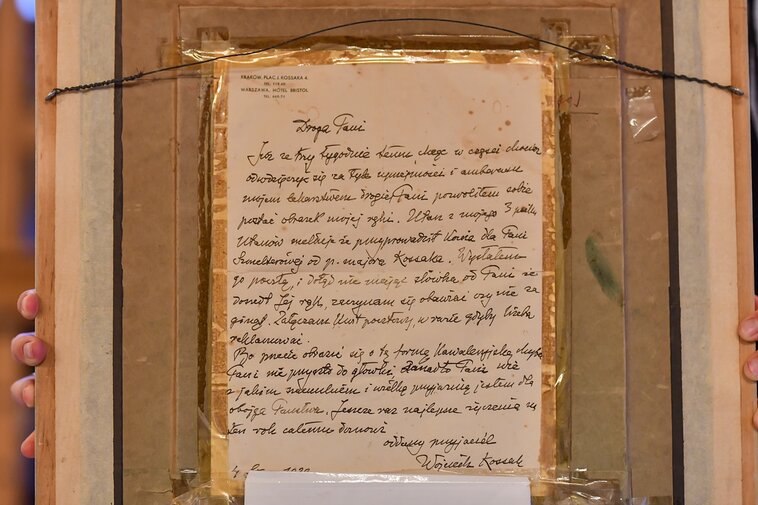 KRAKÓW, PLAC J. KOSSAKA 4.
TEL. 115,49
WARSZAWA, HOTEL BRISTOL
Droga Pani
Już ze trzy tygodnie temu, chcąc w części
odwdzięczyć się za tyle uprzejmości i
mojem lekarstwem drogiej Pani pozwoliłem sobie
posłać obrazek mojej ręki. Ułan z mojego 3 pułku
Ułanów melduje że przyprowadził konia dla Pani
od p. majora Kossaka. Wysłałem
go pocztą, i dotąd nie mając słówka od Pani że
doszedł Jej rąk, zaczynam się obawiać czy nie za
ginął. Załączam kwit pocztowy, w razie gdyby trzeba
reklamować.
Bo przecie obrazić się o tę formę kawaleryjską, chyba
Pani nie przyszło do główki, zanadto Pani wie
z jakim szacunkiem i wielką przyjaźnią jestem dla
obojga Państwa. Jeszcze raz najlepsze życzenia na
ten rok całemu domowi
oddany przyjaciel
Wojciech Kossak